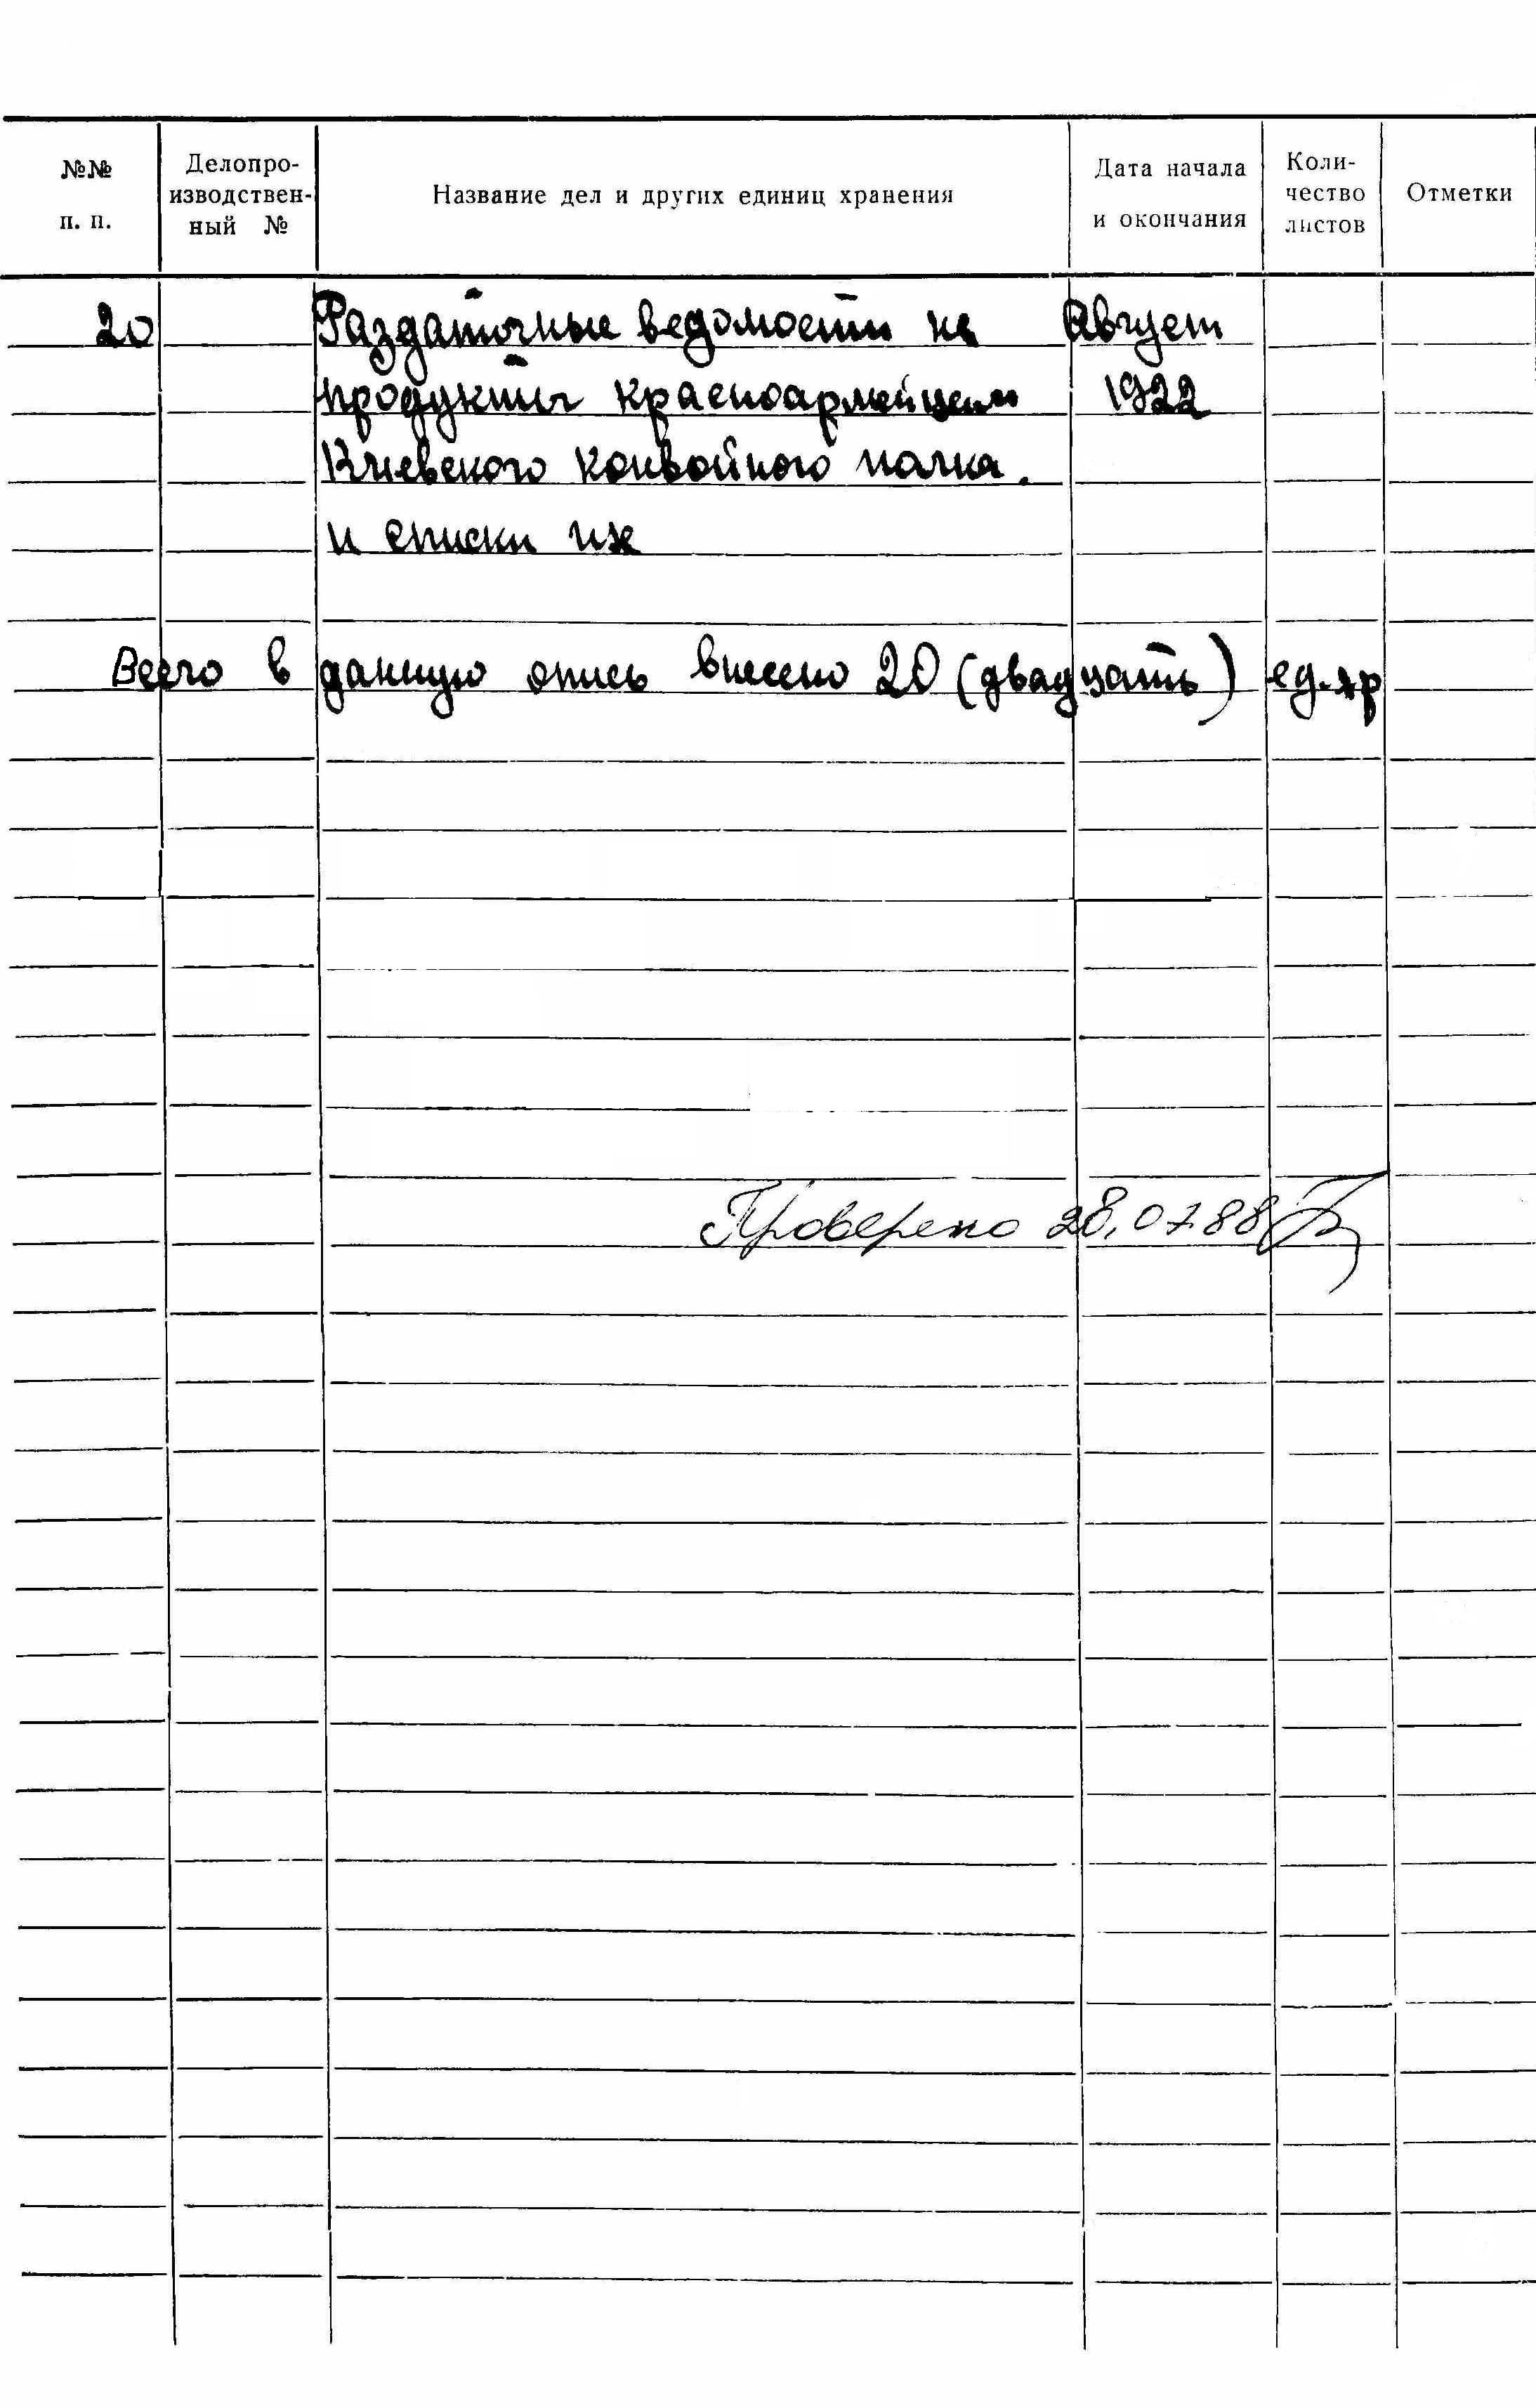 №№ п. п.
Делопро-
изводствен-
ный №
Название дел и других единиц хранения
Дата начала
и окончания
Коли-
чество
листов
Отметки
20 Раздаточные ведомости на Август
продукты красноармейцам 1922
Киевского конвойного полка.
и списки их
Всего в данную опись внесено 20 (двадцать) ед.хр
Проверено 28.07.88